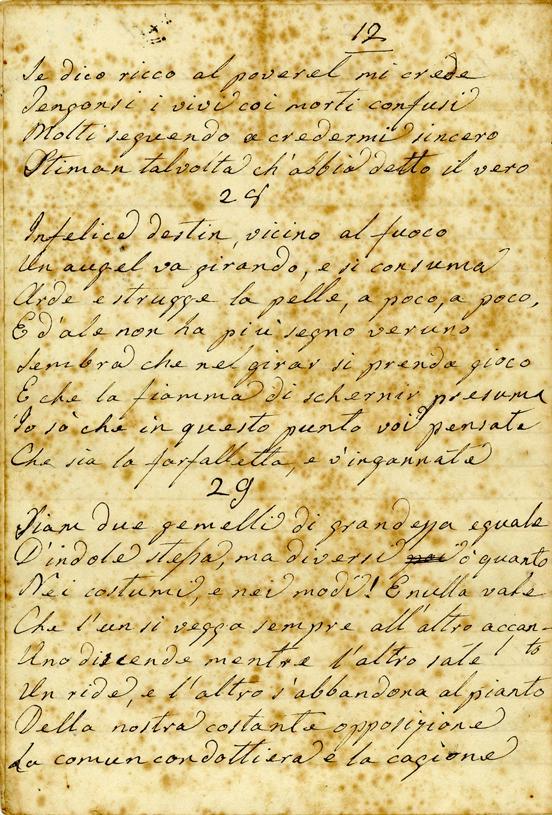 12
Se dico ricco al poverel mi crede
Tengonsi i vivi coi morti confusi
Molti seguendo a credermi sincero
Stiman talvolta ch'abbia detto il vero
28
Infelice destin, vicino al fuoco
Un augel va girando, e si consuma
Arde e strugge la pelle, a poco, a poco,
E d'ale non ha piu' segno veruno
Sembra che nel girar si prenda gioco
E che la fiamma di schernir presuma
Io sò che in questo punto voi pensate
Che sia la farfalletta, e v'ingannate
29
Siam due gemelli di grandezza eguale
D'indole stessa, ma diversi o quanto
Nei costumi, e nei modi! E nulla vale
Che l'un si vegga sempre all'altro accan-
to
Uno discende mentre l'altro sale
Un ride, e l'altro s'abbandona al pianto
Della nostra costante opposizione
La comun condottiera è la cagione